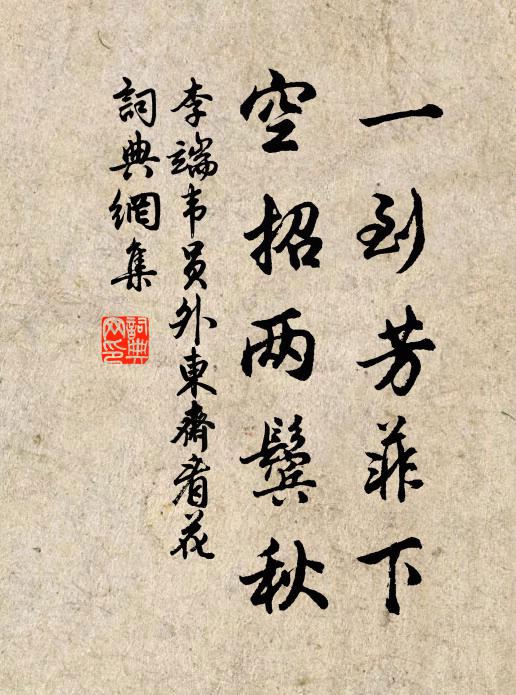 一到芳菲下
空招两鬓秋
李端韦員外東齋看花
詞典網集
詞典网印